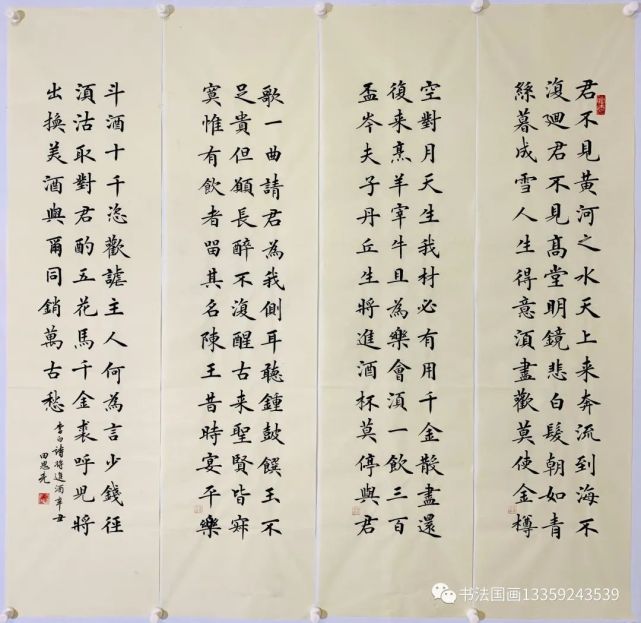 君不見黄河之水天上来奔流到海不
復廻君不見髙堂明鏡悲白髮朝如青
絲暮成雪人生得意須盡歡莫使金樽
空對月天生我材必有用千金散盡還
復来烹羊宰牛且為樂會須一飲三百
盃岑夫子丹丘生將進酒杯莫停與君
歌一曲請君為我側耳聽鍾鼓饌玉不
足貴但願長醉不復醒古来聖賢皆寂
寞惟有飲者留其名陳王昔時宴平樂
斗酒十千恣歡謔主人何為言少錢徑
須沽取對君酌五花馬千金裘呼兒將
出換美酒與爾同銷萬古愁
李白詩將進酒辛丑
书法国画13359243539